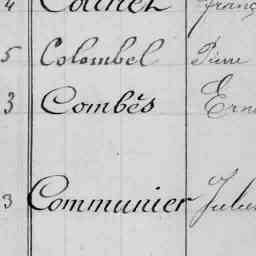 4 Colinet
5 Colombel Pierre
3 Combès
3 Communier